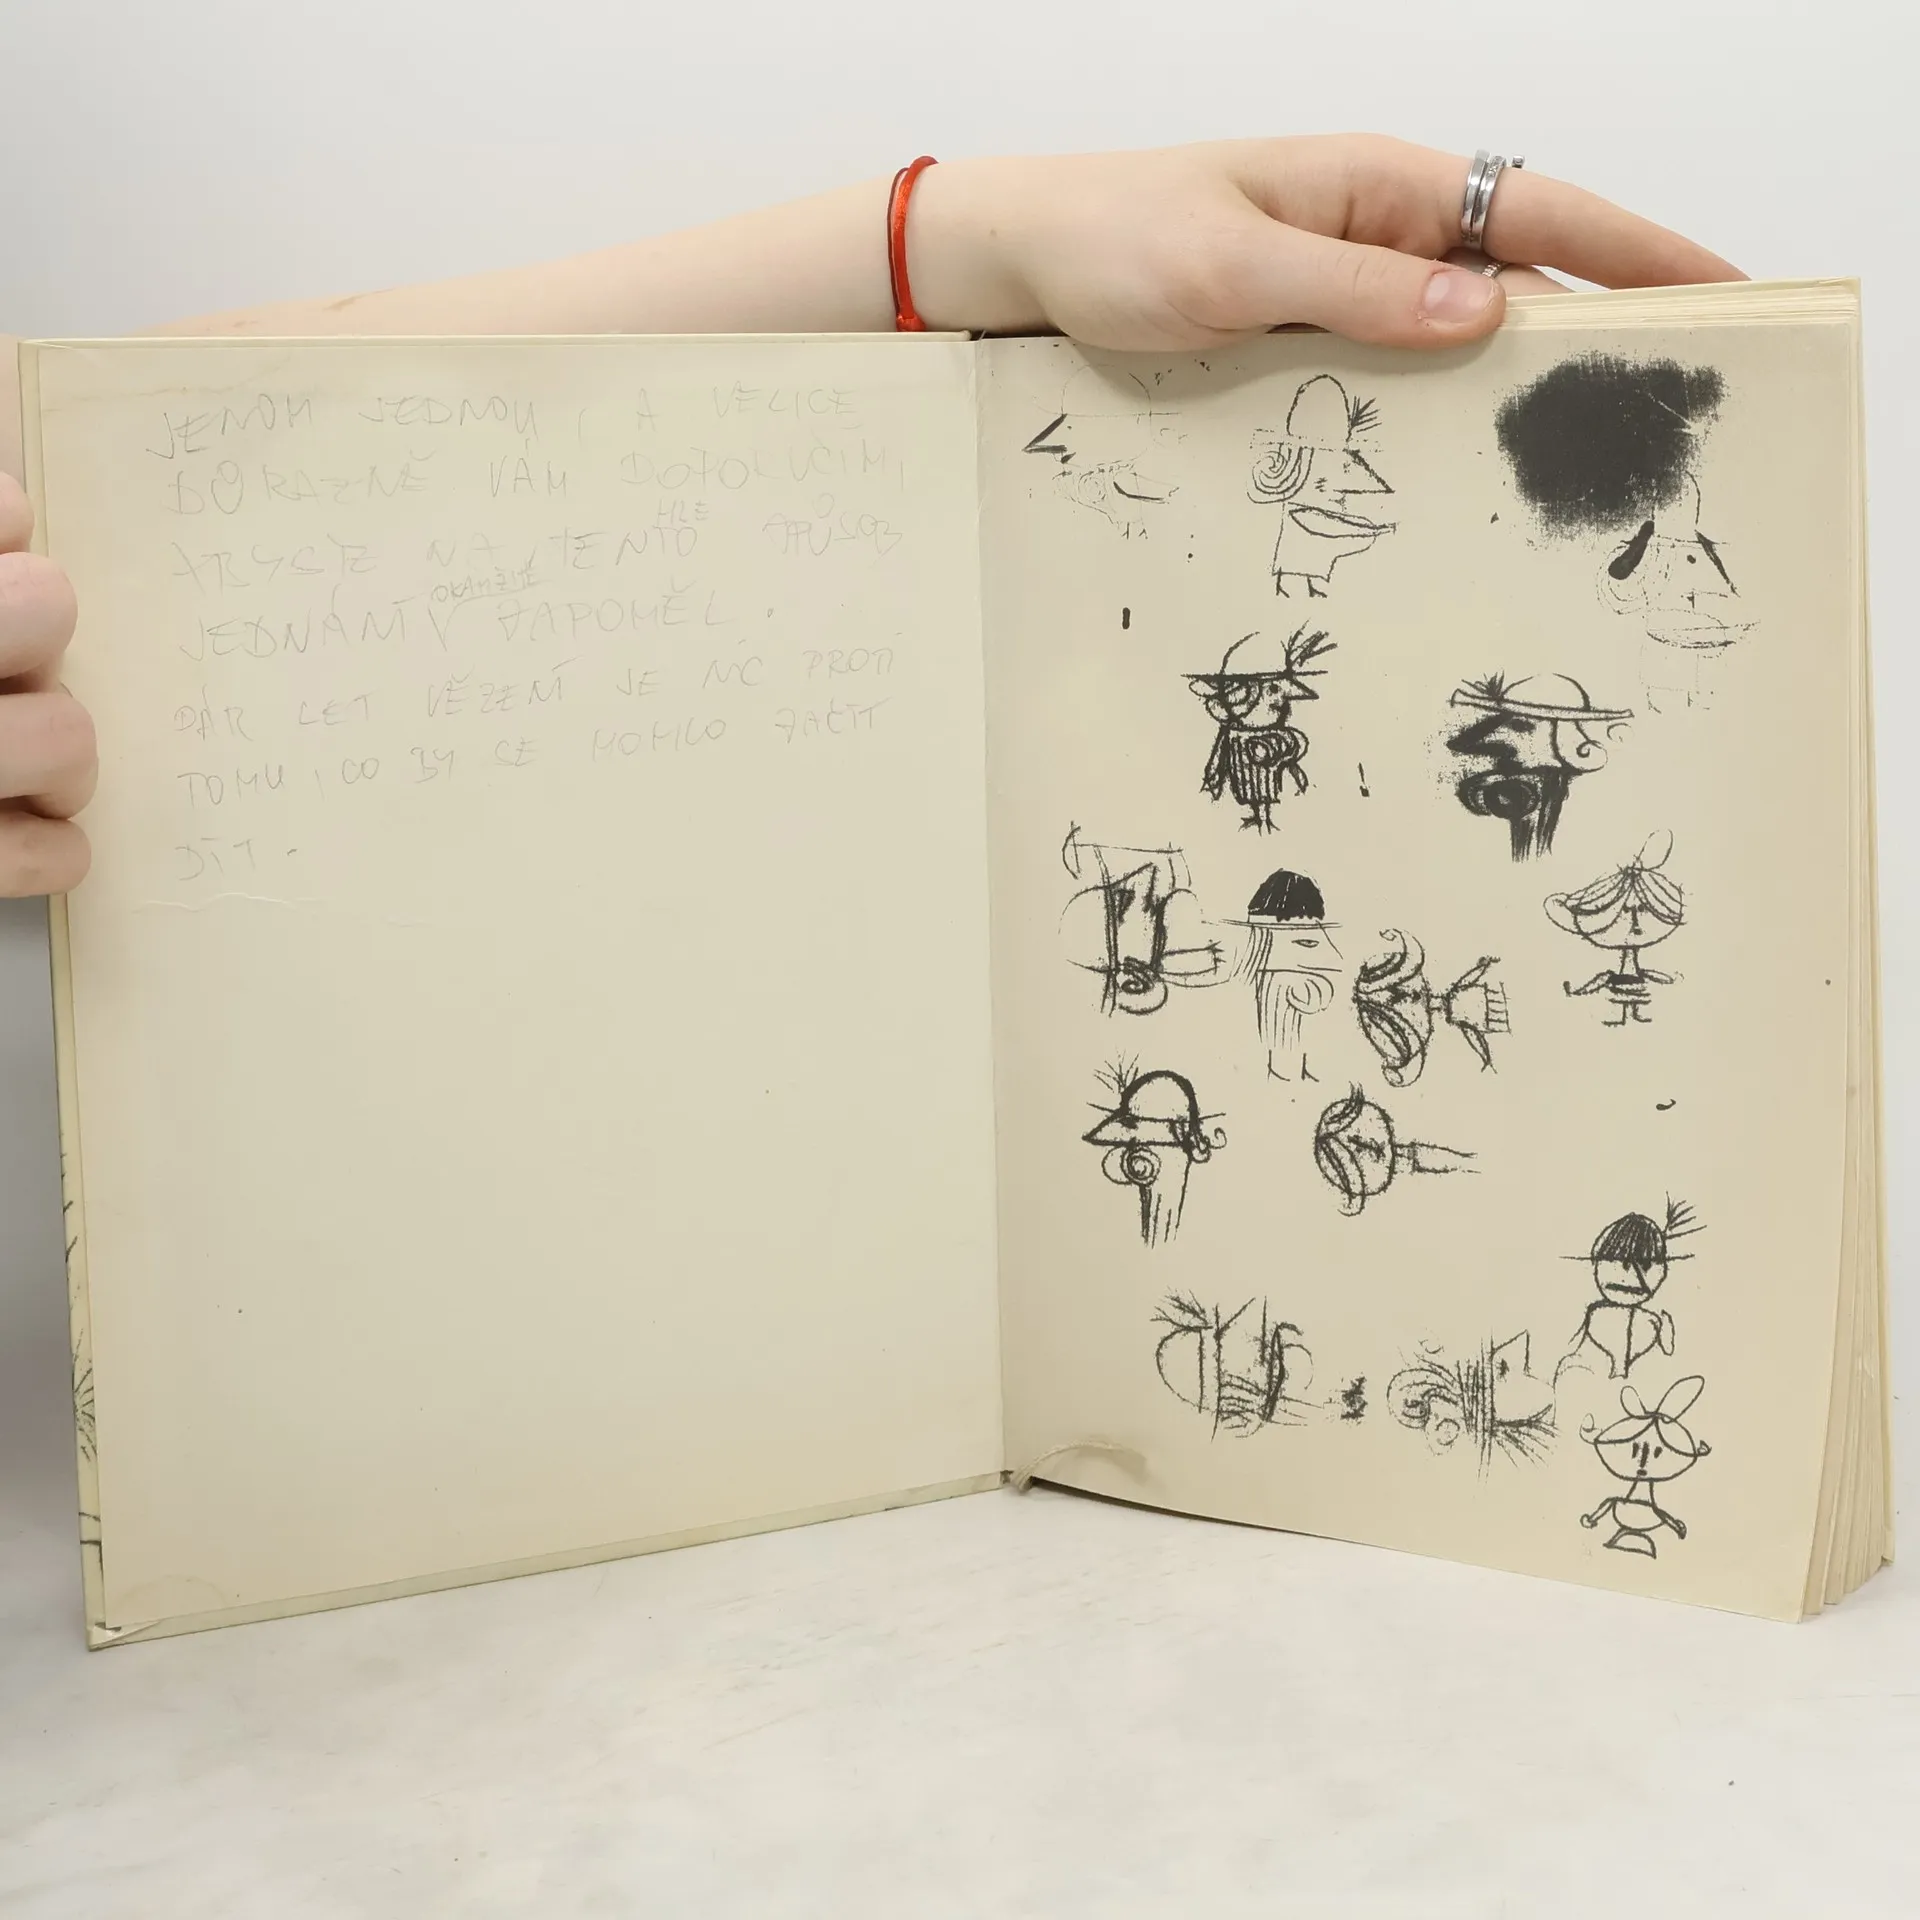 JENOM JEDNOU, A VELICE
DŮRAZNĚ VÁM DOPORUČIM,
ABYSTE NA TENTO HLE ZPŮSOB
JEDNÁNÍ OKAMŽITĚ ZAPOMĚL.
PÁR LET VĚZENÍ JE NIC PROTI
TOMU, CO BY SE MOHLO ZAČÍT
DÍT.